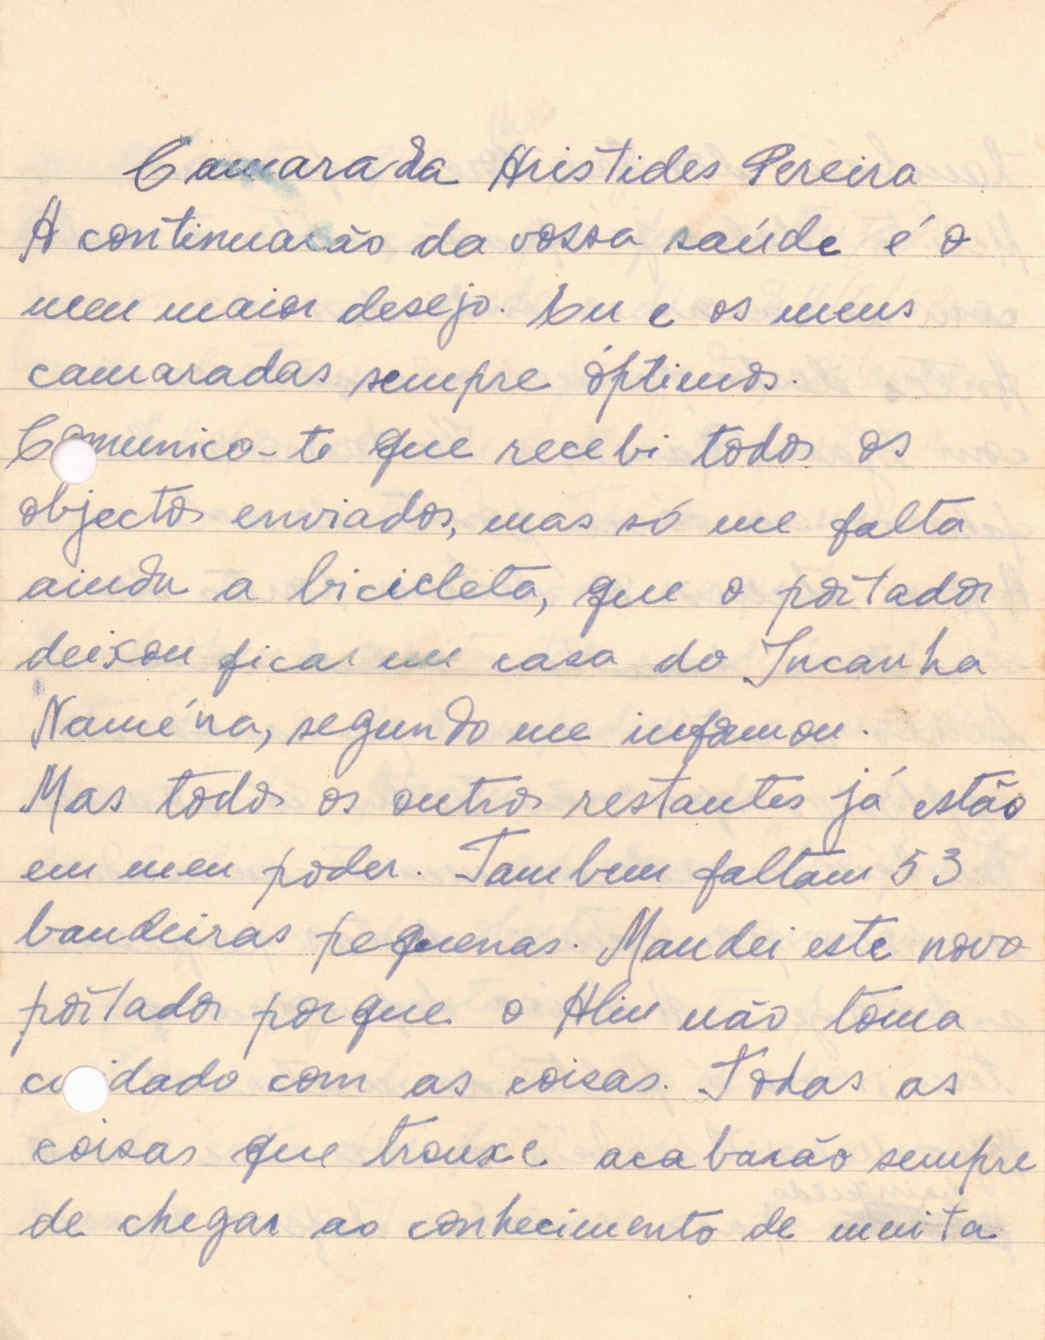 Camarada Aristides Pereira
A continuacão da vossa saúde é o
meu maior desejo. Eu e os meus
camaradas sempre óptimos.
Comunico-te que recebi todos os
objectos enviados, mas só me falta
ainda a bicicleta, que o portador
deixou ficar em casa do Incanha
Naména, segundo me informou.
Mas todos os outros restantes já estão
em meu poder. Tambem faltam 53
bandeiras pequenas. Mandei este novo
portador porque o Aliu não toma
cuidado com as coisas. Todas as
coisas que trouxe acabarão sempre
de chegar ao conhecimento de muita